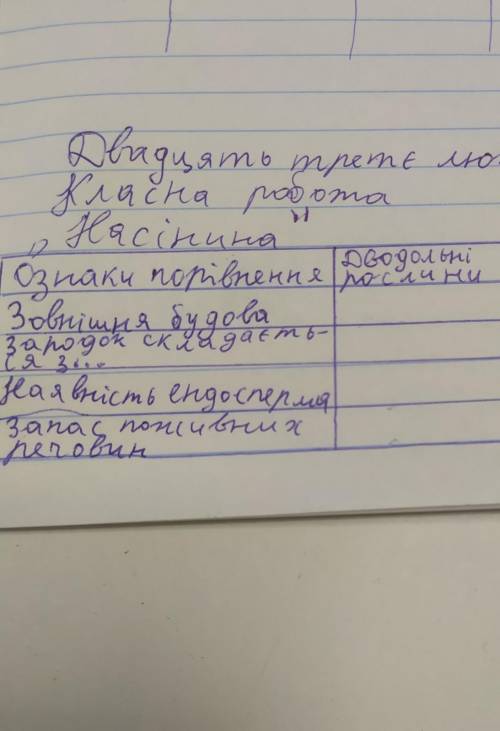 Двадцять третє лю
Класна робота
Насінина
Ознаки порівнення
Дводольні
рослини
Зовнішня будова
Зародок складаєть-
ся з...
Наявність ендосперма
Запас поживних
речовин